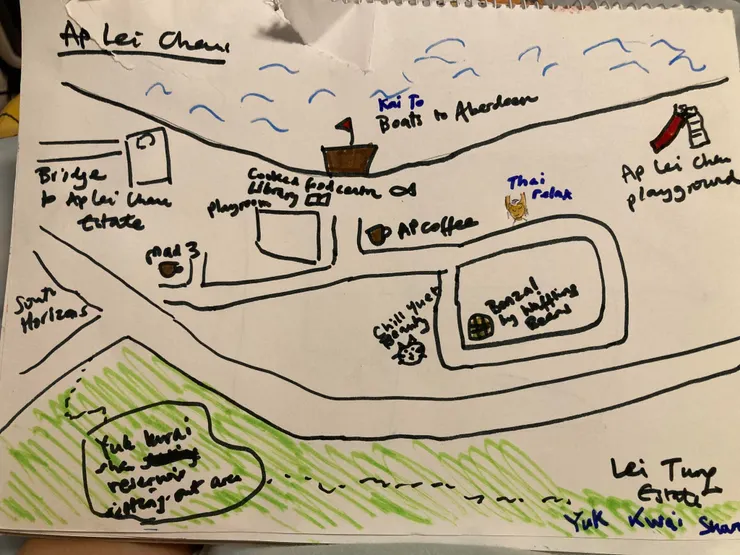 Ap Lei Chau
Kai To
Boats to Aberdeen
Bridge
to Ap Lei Chau
Estate
Cooked food centre
Library
playroom
Thai
Relax
Ap Lei Chau
playground
AP Coffee
mad 3
South
Horizons
Chill yuet
Beauty
Bonzai
by Waffling
Beans
Yuk Kwai
shan
reservoir
sitting-out area
Lei Tung
Estate
Yuk Kwai Shan